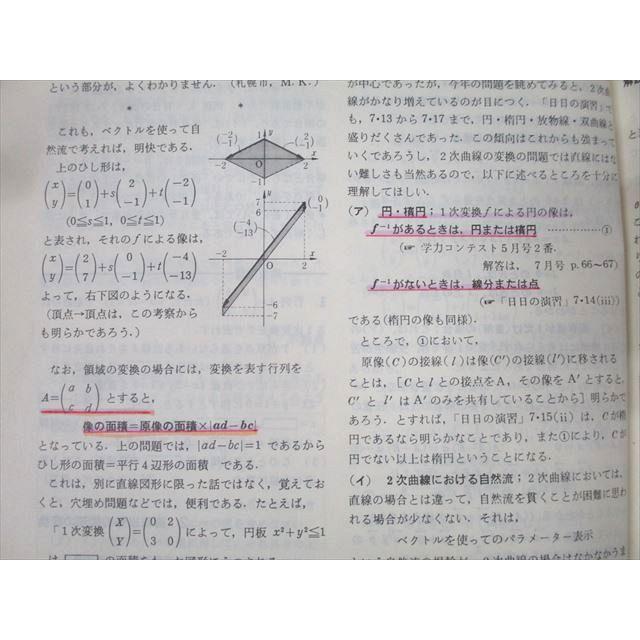 という部分が，よくわかりません．（札幌市，M．K．）
これも，ベクトルを使って自
然流で考えれば，明快である．
上のひし形は，
(x y)=(0 1)+s(2 −1)+t(−2 −1)
(0≦s≦1, 0≦t≦1)
と表され，それの f による像は，
(x y)=(2 7)+s(0 −1)+t(−4 −13)
よって，右下図のようになる．
（頂点→頂点は，この考察から
も明らかであろう．）
なお，領域の変換の場合には，変換を表す行列を
A=(a b c d) とすると，
像の面積＝原像の面積×|ad−bc|
となっている．上の問題では，|ad−bc|=1 であるから
ひし形の面積＝平行4辺形の面積 である．
これは，別に直線図形に限った話ではなく，覚えてお
くと，穴埋め問題などでは，便利である．たとえば，
「1次変換(X Y)=(0 2 3 0)によって，円板 x²+y²≦1
(2 −1)
(−2 −1)
1
y
x
−2
O
2
−1
y
7
6
(0 −1)
(−4 −13)
x
−2
O
2
−6
−7
が中心であったが，今年の問題を眺めてみると，2次曲
線がかなり増えているのが目につく．「日日の演習」で
も，7・13 から 7・17 まで，円・楕円・放物線・双曲線と
盛りだくさんであった．この傾向はこれからも強まって
いくであろうし，2次曲線の変換の問題では直線にはな
い難しさも当然あるので，以下に述べるところを十分に
理解してほしい．
（ア） 円・楕円；1次変換 f による円の像は，
f⁻¹があるときは，円または楕円 ……………①
（☞ 学力コンテスト5月号2番．
解答は，7月号 p.66〜67）
f⁻¹がないときは，線分または点
（☞「日日の演習」7・14(iii)）
である（楕円の像も同様）．
ところで，①において，
原像(C)の接線(l)は像(C′)の接線(l′)に移される
ことは，[C と l との接点を A，その像を A′ とすると，
C′ と l′ は A′ のみを共有していることから] 明らかで
あろう．とすれば，「日日の演習」7・15(ii) は，C が楕
円であるなら明らかなことであり，また①により，C が
円でない以上は楕円ということになる．
（イ） 2次曲線における自然流；2次曲線においては，
直線の場合とは違って，自然流を貫くことが困難に思わ
れる場合が少なくない．それは，
ベクトルを使ってのパラメーター表示